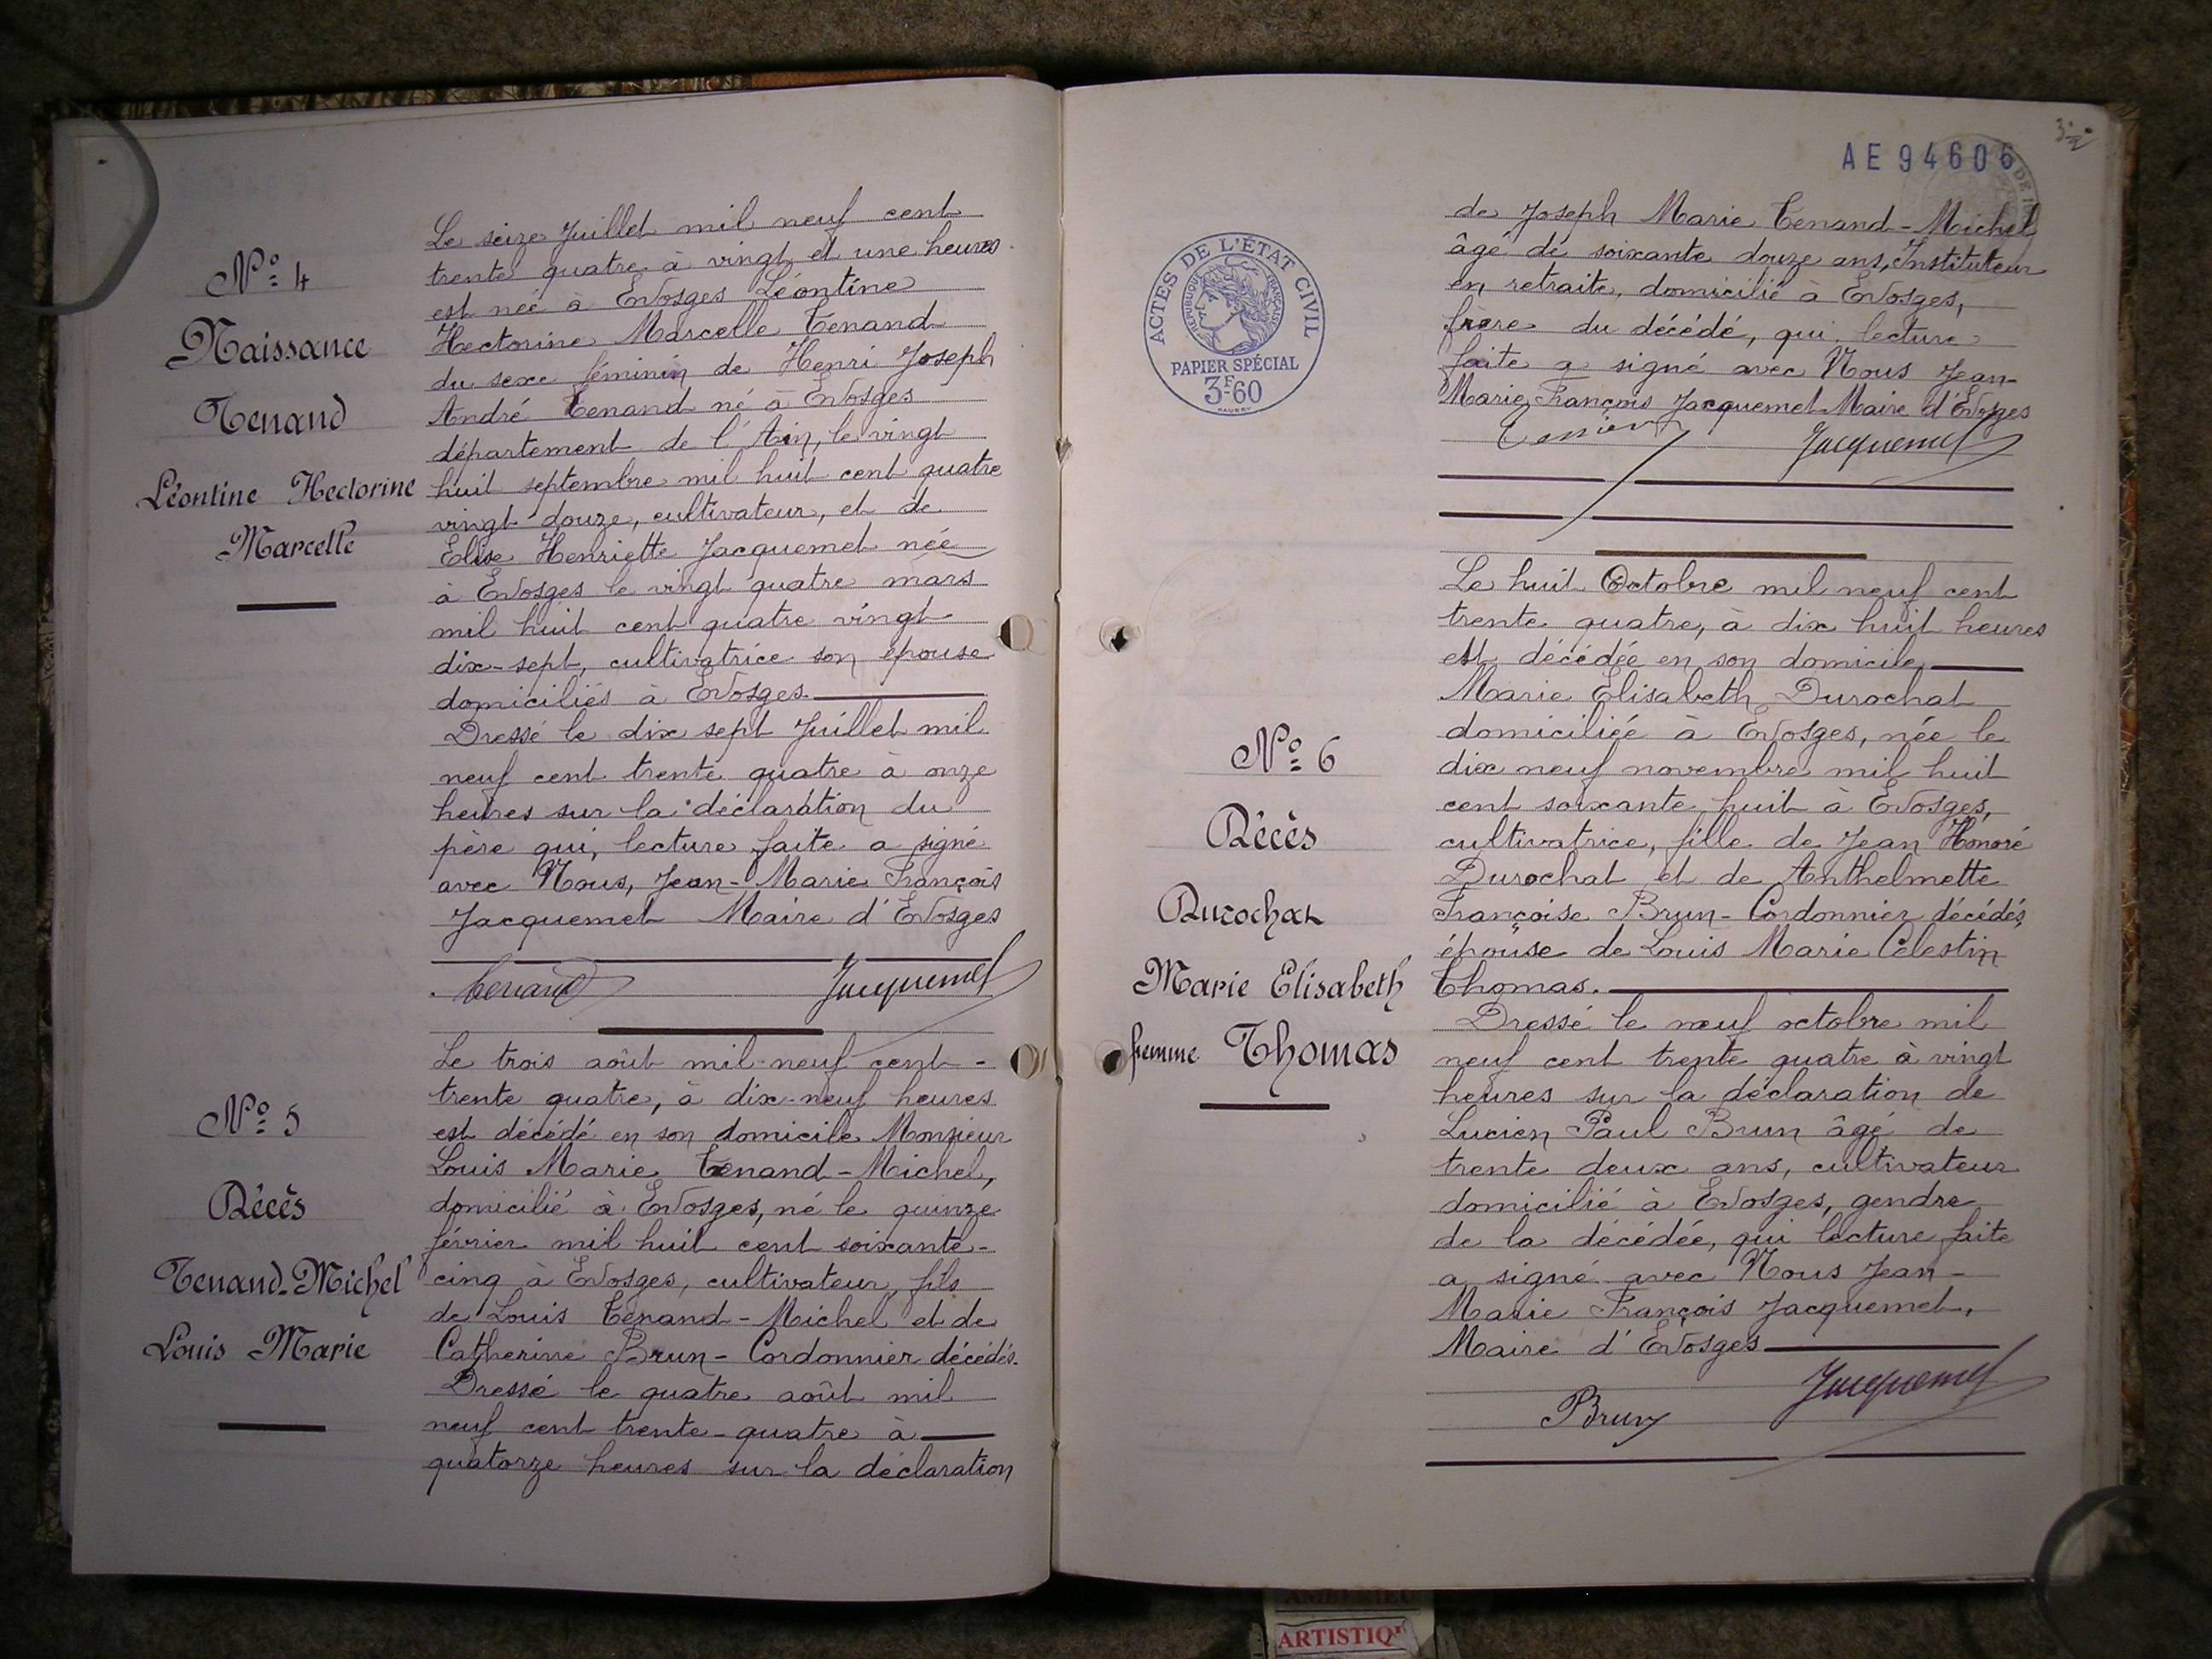 N° 4
Naissance
Tenand
Léontine Hectorine
Marcelle
Le seize Juillet mil neuf cent
trente quatre à vingt et une heures
est née à Evosges Léontine
Hectorine Marcelle Tenand
du sexe féminin de Henri Joseph
André Tenand né à Evosges
département de l'Ain, le vingt
huit septembre mil huit cent quatre
vingt douze, cultivateur, et de
Elise Henriette Jacquemet née
à Evosges le vingt quatre mars
mil huit cent quatre vingt
dix-sept, cultivatrice son épouse
domiciliés à Evosges.
Dressé le dix sept Juillet mil
neuf cent trente quatre à onze
heures sur la déclaration du
père qui, lecture faite a signé
avec Nous, Jean-Marie François
Jacquemet Maire d'Evosges
Tenand Jacquemet
N° 5
Décès
Tenand-Michel
Louis Marie
Le trois août mil neuf cent-
trente quatre, à dix-neuf heures
est décédé en son domicile Monsieur
Louis Marie Tenand-Michel,
domicilié à Evosges, né le quinze
février mil huit cent soixante-
cinq à Evosges, cultivateur, fils
de Louis Tenand-Michel et de
Catherine Brun-Cordonnier décédés.
Dressé le quatre août mil
neuf cent trente-quatre à
quatorze heures sur la déclaration
AE 94606
ACTES DE L'ÉTAT CIVIL
RÉPUBLIQUE FRANÇAISE
PAPIER SPÉCIAL
3F-60
de Joseph Marie Tenand-Michel
âgé de soixante douze ans, Instituteur
en retraite, domicilié à Evosges,
frère du décédé, qui, lecture
faite a signé avec Nous Jean-
Marie François Jacquemet Maire d'Evosges
Jacquemet
N° 6
Décès
Durochat
Marie Elisabeth
femme Thomas
Le huit Octobre mil neuf cent
trente quatre, à dix huit heures
est décédée en son domicile
Marie Elisabeth Durochat
domiciliée à Evosges, née le
dix neuf novembre mil huit
cent soixante huit à Evosges,
cultivatrice, fille de Jean Honoré
Durochat et de Anthelmette
Françoise Brun-Cordonnier décédés,
épouse de Louis Marie Célestin
Thomas.
Dressé le neuf octobre mil
neuf cent trente quatre à vingt
heures sur la déclaration de
Lucien Paul Brun âgé de
trente deux ans, cultivateur
domicilié à Evosges, gendre
de la décédée, qui lecture faite
a signé avec Nous Jean-
Marie François Jacquemet,
Maire d'Evosges
Brun Jacquemet
ARTISTIQ